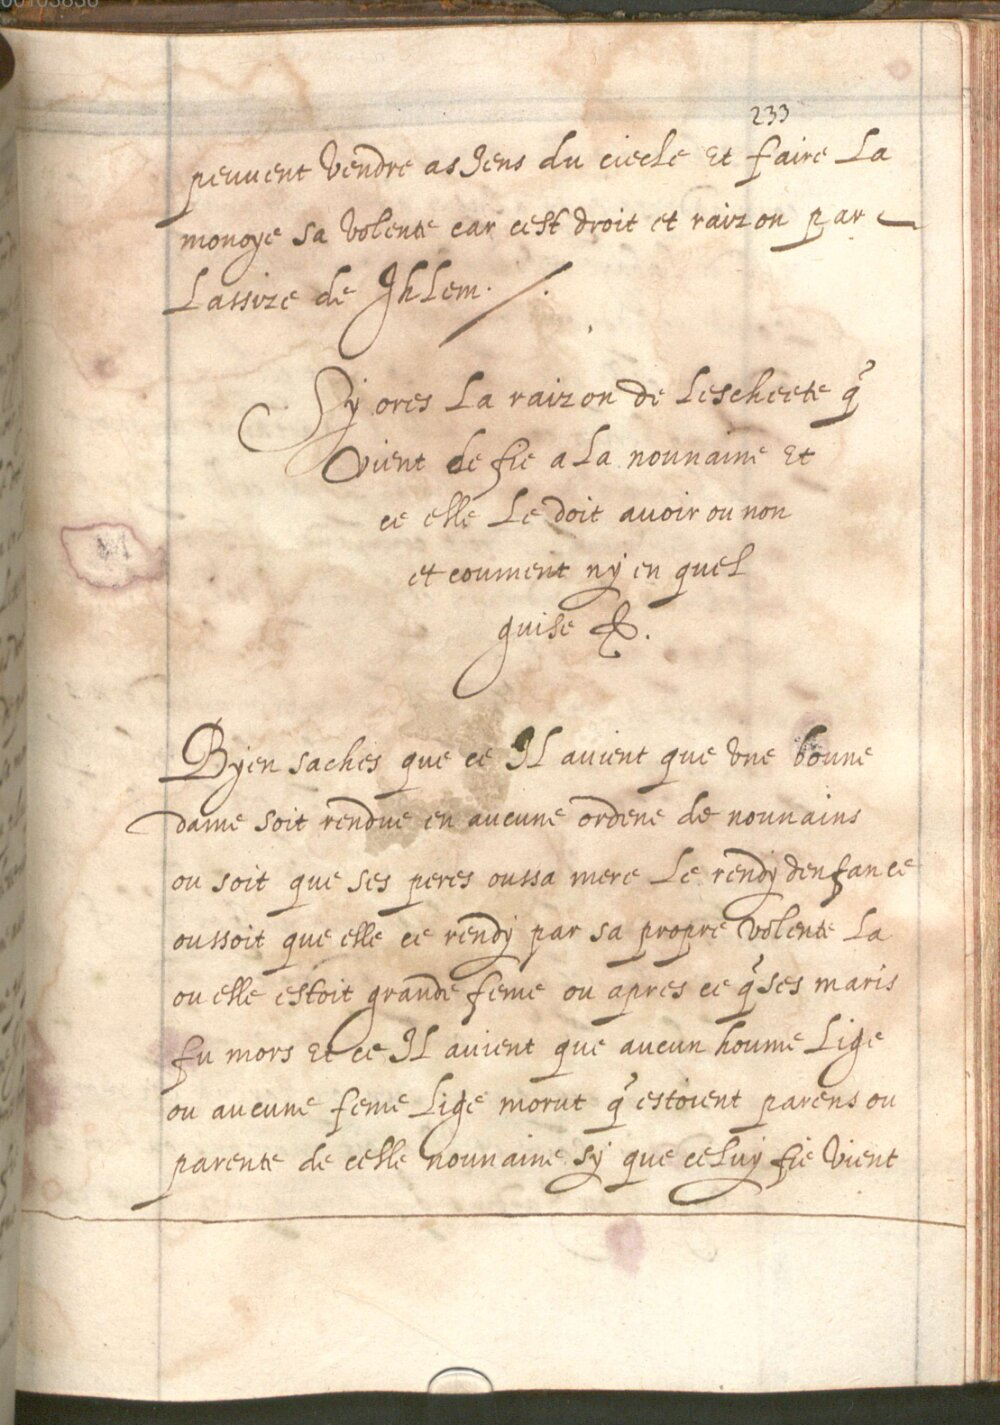 00103836
233
peuuent vendre as Jens du ciecle et faire La
monoye sa volente car cest droit et raizon par
Lassize de Jhlem.
Sy ores La raizon de Lescheete q̃
vient de fie a La nounaine et
ce elle Le doit auoir ou non
et coument ny en quel
guise &.
Byen saches que ce Il auient que vne boune
dame soit rendue en aucune ordene de nounains
ou soit que ses peres oussa mere Le rendy denfance
oussoit que elle ce rendy par sa propre volente La
ou elle estoit grande feme ou apres ce q̃ ses maris
fu mors et ce Il auient que aucun houme Lige
ou aucune feme Lige morut q̃ estoient parens ou
parente de celle nounaine sy que celuy fie vient